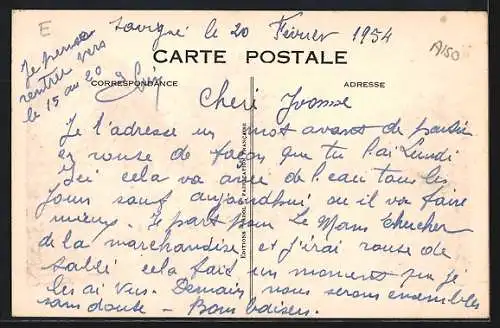 E
Savigné le 20 Février 1954
A150
Je pense
rentrer vers
le 15 au 20
CARTE POSTALE
CORRESPONDANCE
ADRESSE
Cheri Yvonne
Je t'adresse un mot avant de partir
en route de façon que tu l'ai Lundi
Ici cela va avec de l'eau tous les
jours sauf aujourdhui ou il va faire
mieux. Je part pour Le Mans chercher
de la marchandise et j'irai route de
Sablé cela fait un moment que je
les ai vus. Demain nous serons ensembles
sans doute - Bons baisers.
FABRICATION FRANÇAISE